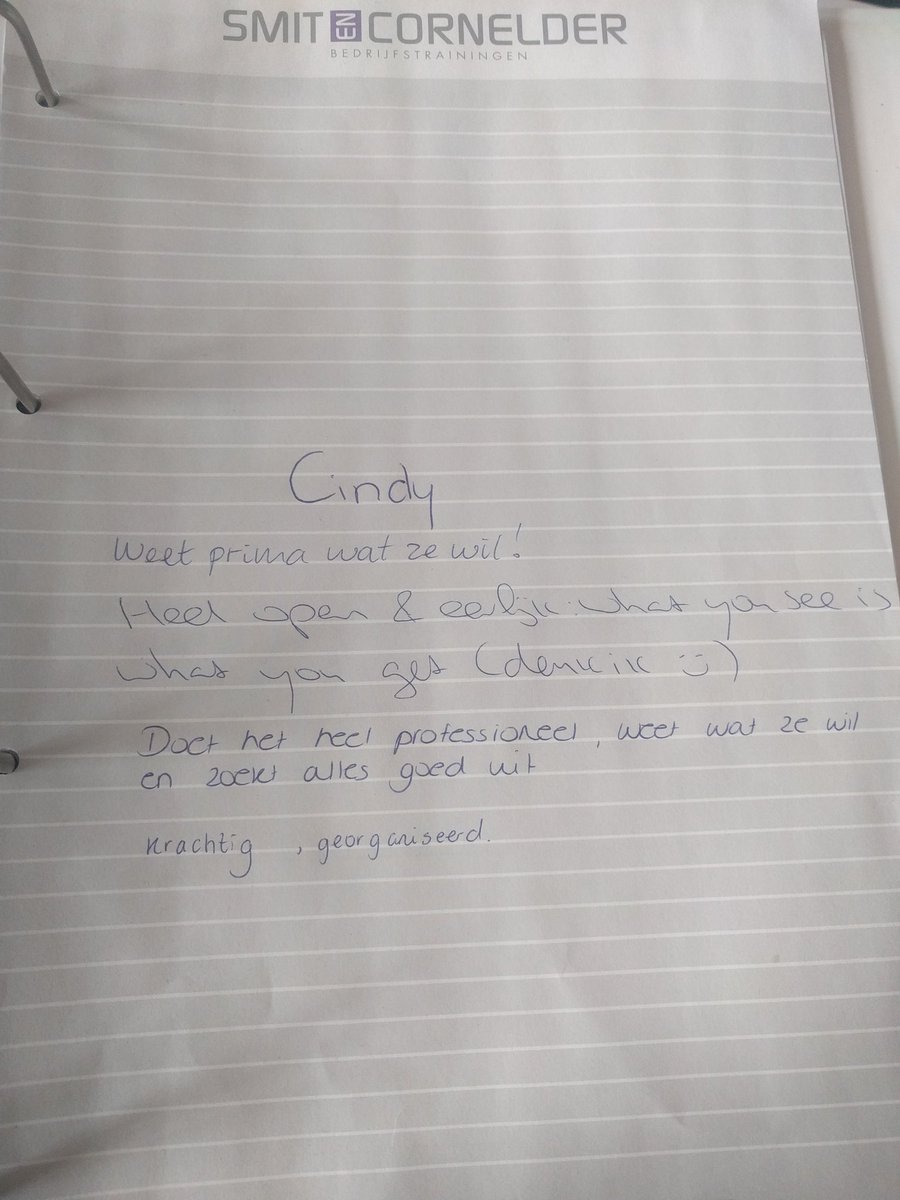 SMIT EN CORNELDER
BEDRIJFSTRAININGEN
Cindy
Weet prima wat ze wil!
Heel open & eerlijk: what you see is
what you get (denk ik :))
Doet het heel professioneel, weet wat ze wil
en zoekt alles goed uit
krachtig , georganiseerd.